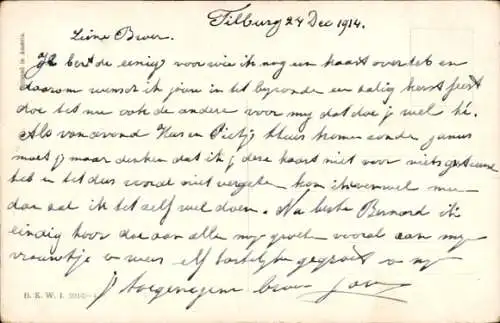 Tilburg 24 Dec 1914.
Lieve Broer.
Jij bent de eenigs voor wie ik nog een kaart over heb en
daarom wensch ik jou in het byzonder een zalig kerstfeest
doe het nu ook de andere voor my dat doe j wel hé.
Als vanavond Kus en Pietj thuis komen zonder
moet j maar denken dat ik j deze kaart niet voor niets gestuurd
heb en het dus worde niet vergeten kom ik evenwel
dan zal ik het zelf wel doen. Nu beste Bernard ik
eindig hoor doe aan allen my groeten vooral aan my
vrouwtje en wees zelf hartelyk gegroet v my
j toegenegen broer
B. K. W. I.